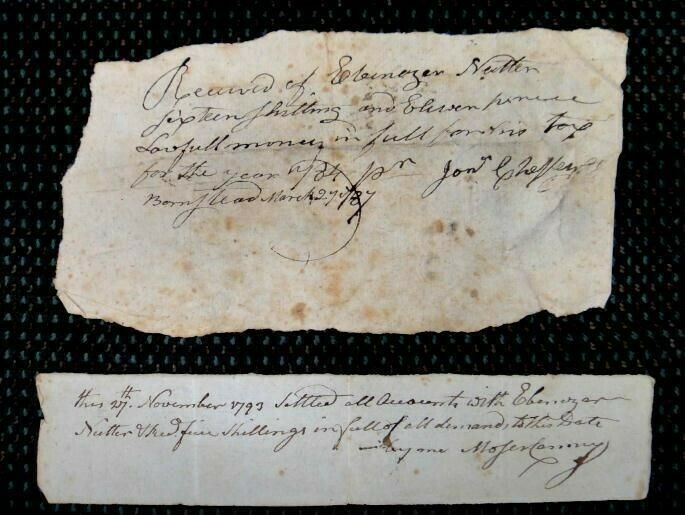 Receivd of Ebenezer Nutter
sixteen shilling and Eleven pence
Lawfull money in full for his tax
for the year 1784 pr Jonn
Barnstead March 27 1787
this 27th. November 1793 Settled all Accounts with Ebenezer
Nutter & Recd five Shillings in full of all demands to this Date